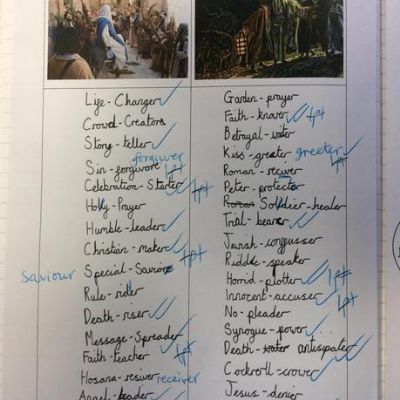 Life - Changer
Crowd - Creators
Story - teller
forgiver
Sin - forgivare
1pt
Celebration - Starter
1pt
Holy - Prayer
Humble - leader
Christian - maker
1pt
Saviour
Special - Saviore
Rule - rider
Death - riser
Message - Spreader
Faith - teacher
1pt
Hosana - resiver receiver
Angel - leader
Garden - prayer
Faith - knower
1pt
Betrayal - water
Kiss - greater greeter
1pt
Roman - reciver
Peter - protecter
Roman Soldier - healer
Trial - bearer
Jewish - congusser
Riddle - speaker
Horrid - plotter
1pt
Innocent - accuser
1pt
No - pleader
Synogue - power
Death - water antisipater
Cockroll - crower
Jesus - denier